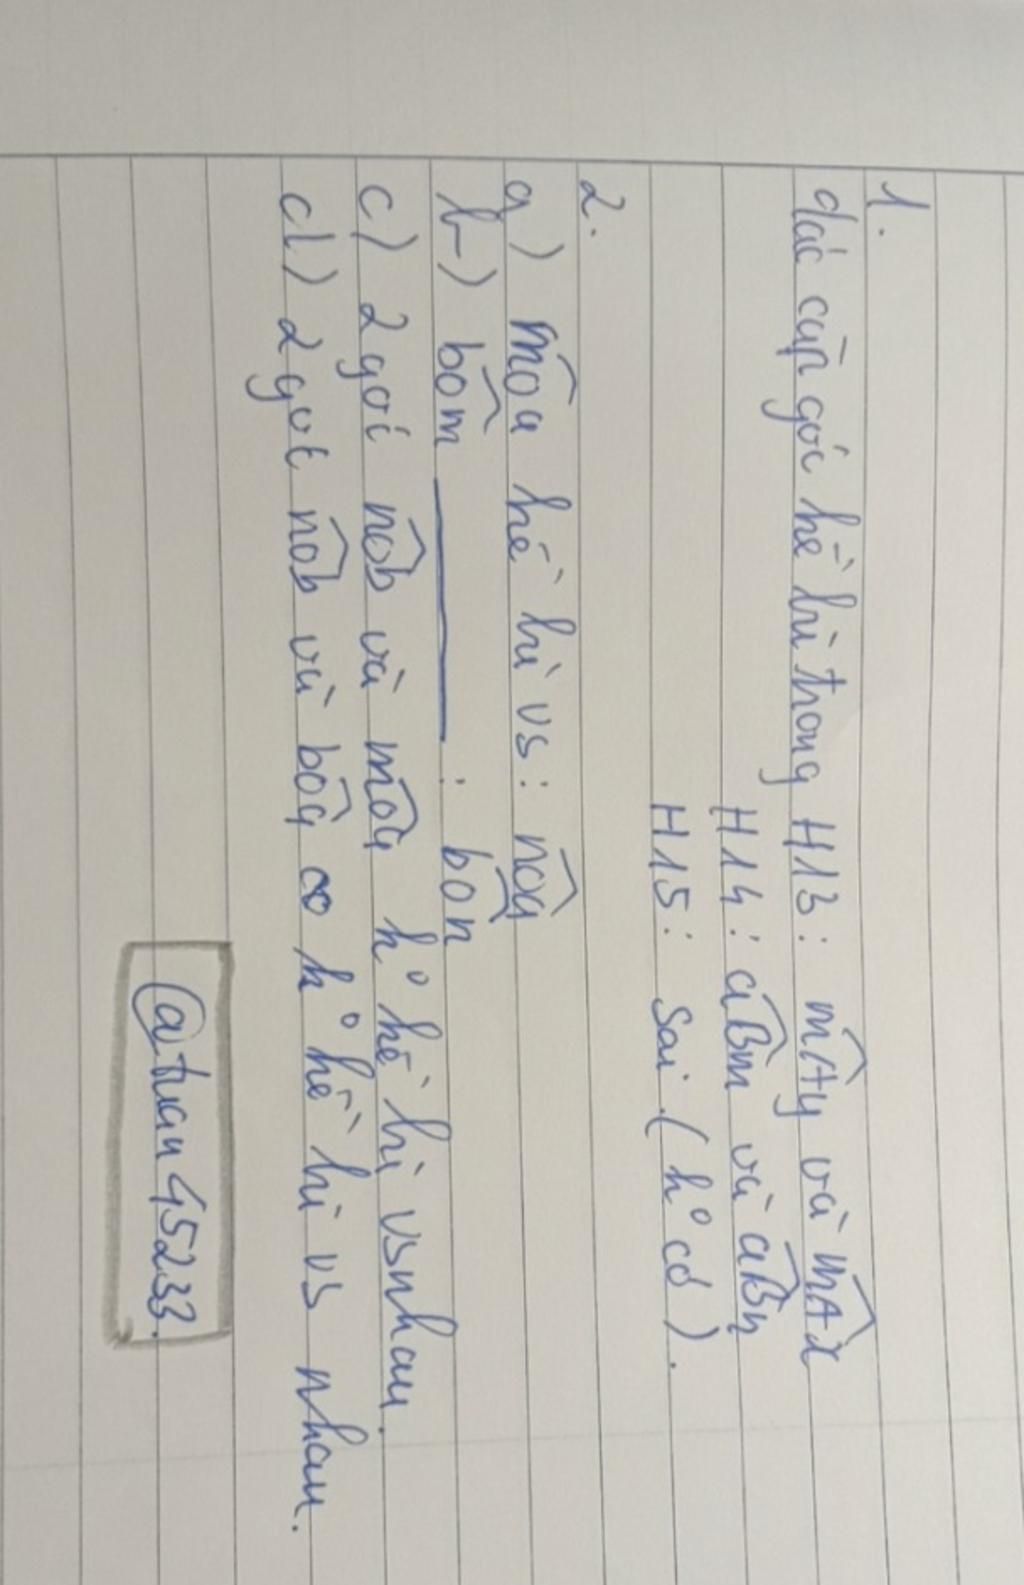 1.
các cặp góc kề bù trong H13: mAy và mAx
H14: aBm và aBn
H15: Sai (ko có).
2.
a) moa kề bù vs: noa
b) bom : bon
c) 2 goi nob và moa ko kề bù vs nhau.
d) 2 got nob và boa có ko kề bù vs nhau.
@tuan45233.